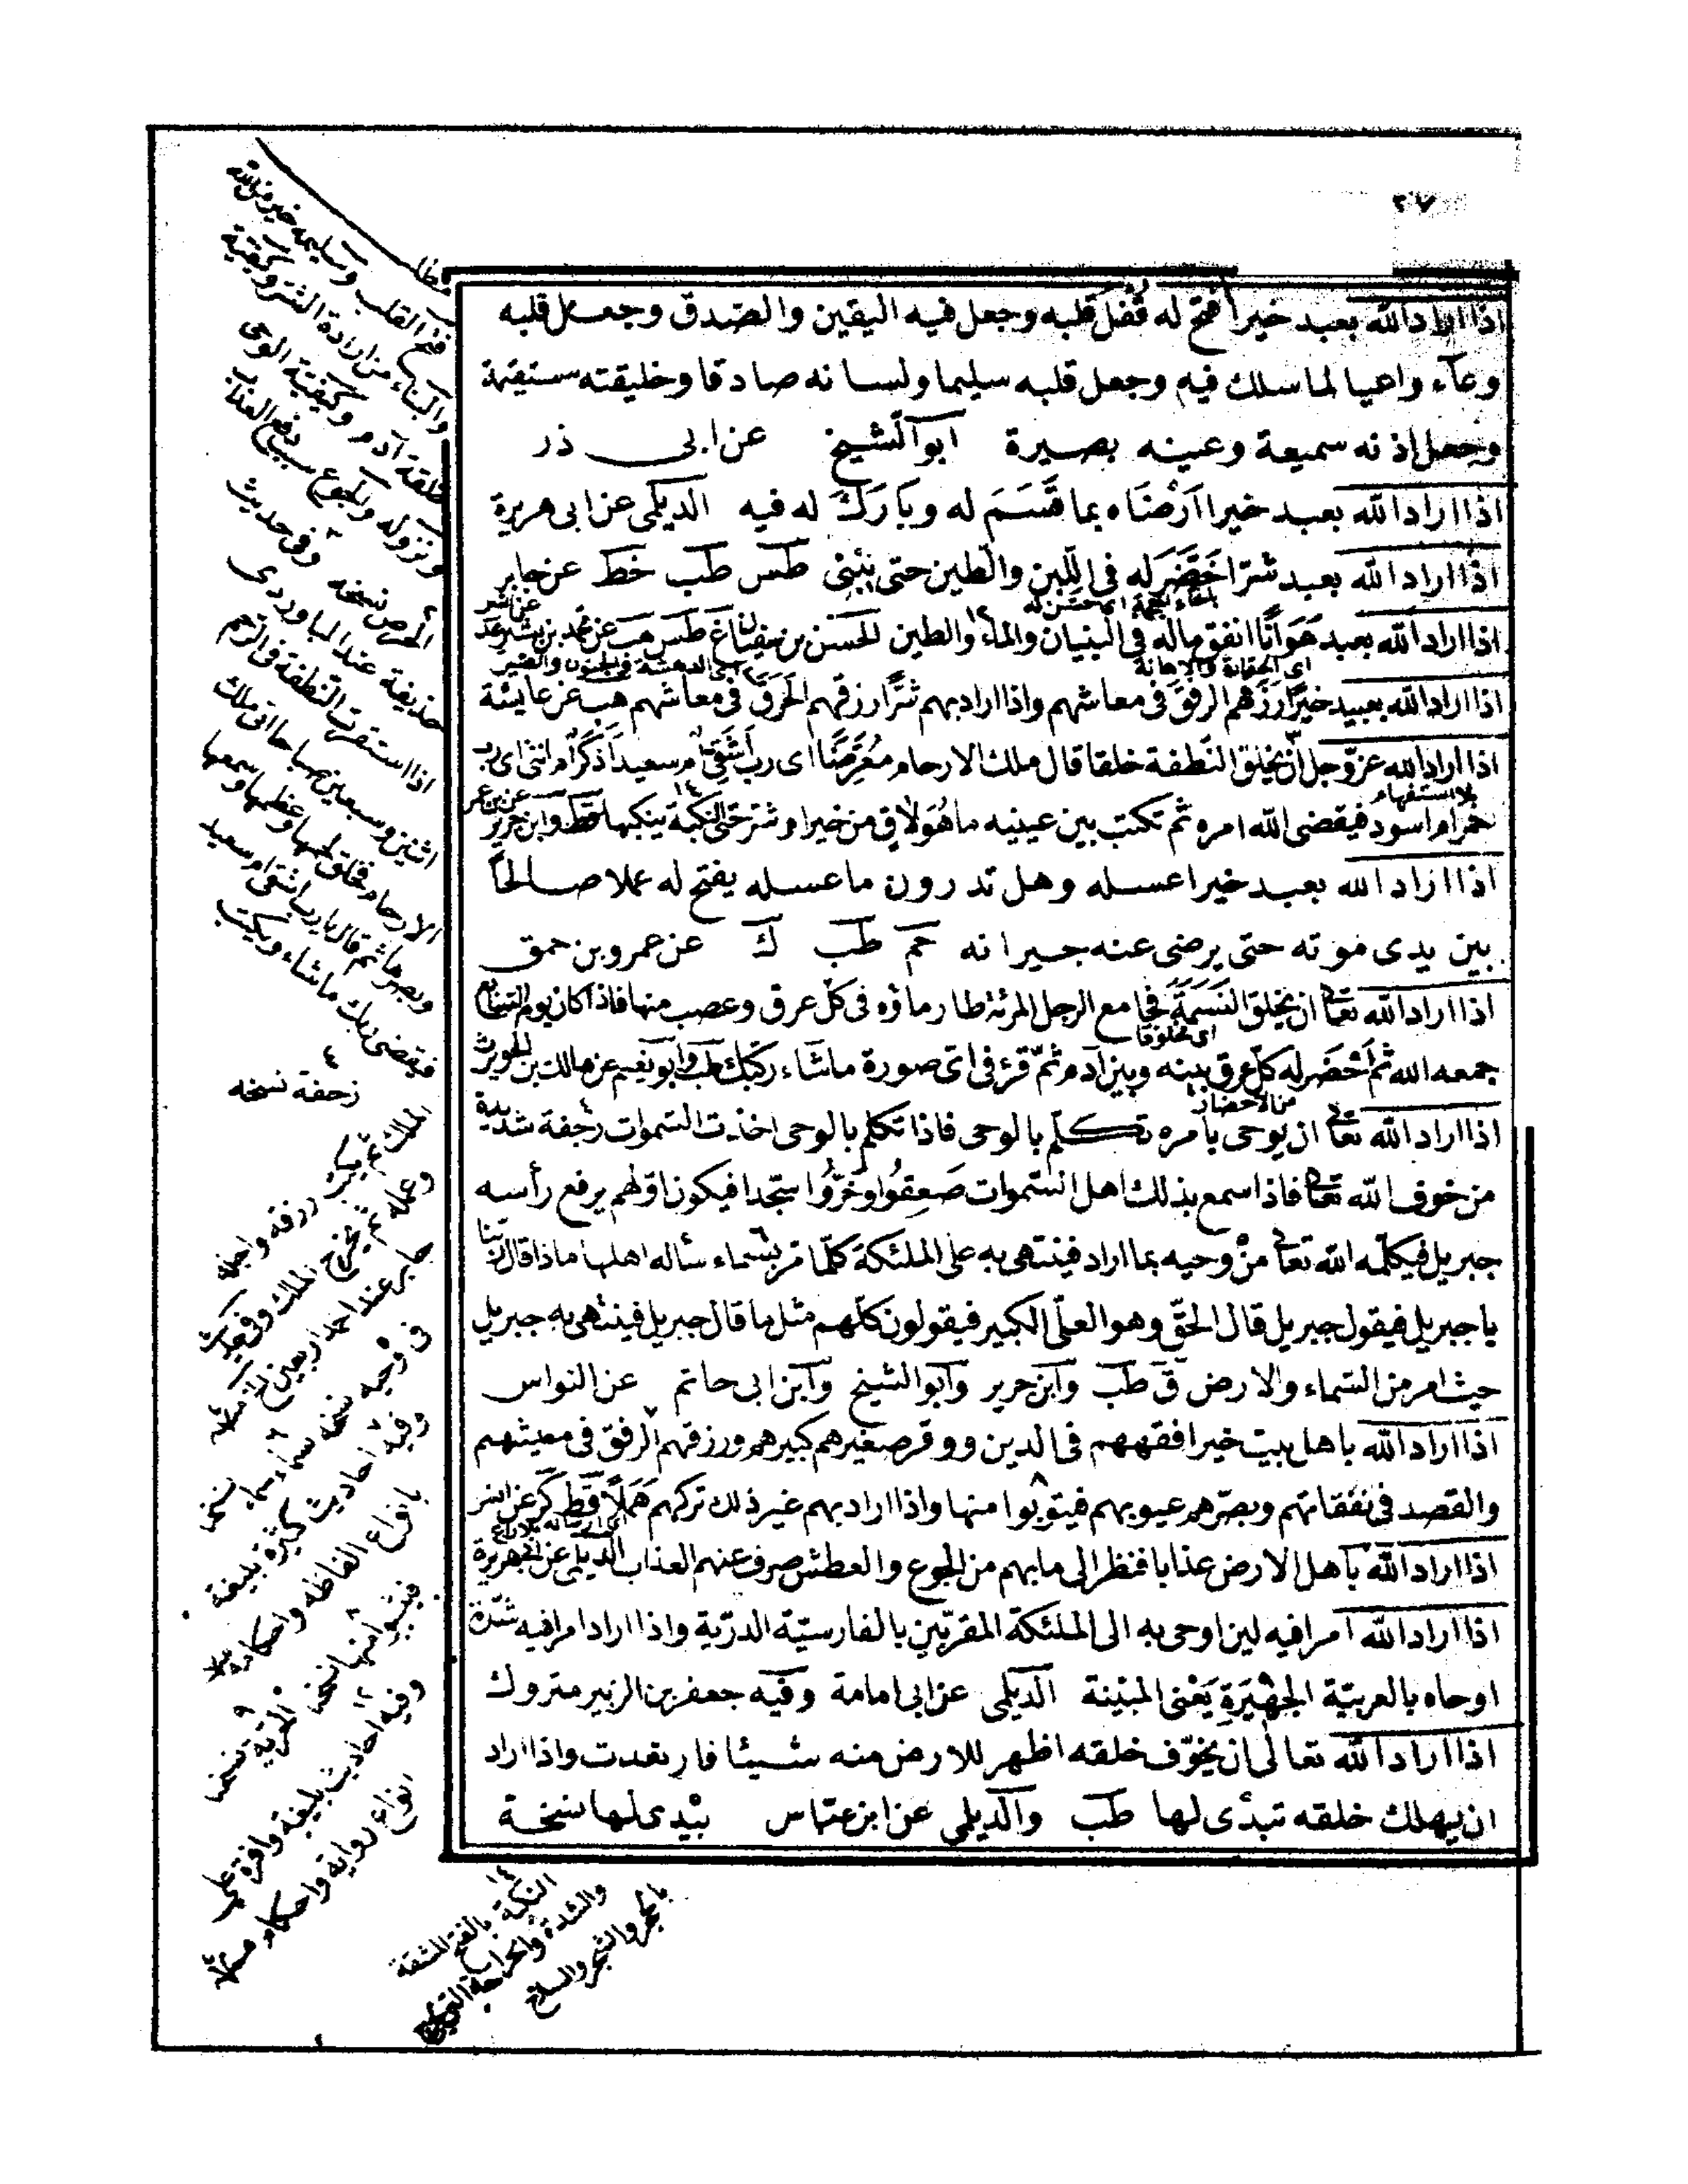 ٢٧
اذا اراد الله بعبد خيرا فتح له قفل قلبه وجعل فيه اليقين والصدق وجعل قلبه
وعآء واعيا لما سلك فيه وجعل قلبه سليما ولسانه صادقا وخليقته مستقيمة
وجعل اذنه سميعة وعينه بصيرة ابو الشيخ عن ابى ذر
اذا اراد الله بعبد خيرا اَرْضَاه بما قَسَمَ له وبَارَكَ له فيه الديلمى عن ابى هريرة
اذا اراد الله بعبد شرّا خَضَّرَ له فى اللَّبِن والطين حتى يبنى طس طب خط عن جابر
بالخاء المعجمة اى حسّن له
اذا اراد الله بعبد هَوَانًا انفق ماله فى البنيان والماء والطين الحسن بن سفيان طس هب عن محمد بن بشير عد عن انس
اى الحقارة والاهانة
اذا اراد الله بعبيد خيرًا رزقهم الرفق فى معاشهم واذا اراد بهم شرًّا رزقهم الخرق فى معاشهم هب عن عايشة
اذا اراد الله عزّ وجل ان يخلق النطفة خلقا قال ملك الارحام مُعْرِضًا اى رب أشَقِىٌّ ام سعيد أذَكَرٌ ام انثى اى رب
بلا استفهام
احمر ام اسود فيقضى الله امره ثم تكتب بين عينيه ما هُوَ لاقٍ من خير او شر حتى النكبة ينكبها قط وابن جرير عن ابن عمر
اذا اراد الله بعبد خيرا عسله وهل تدرون ما عسله يفتح له عملا صالحًا
بين يدى موته حتى يرضى عنه جيرانه حم طب ك عن عمرو بن حمق
اذا اراد الله تعالى ان يخلق النَسَمَةَ فجامع الرجل المرئة طار ماؤه فى كل عرق وعصب منها فاذا كان يوم السابع
اى مخلوقا
جمعه الله ثم اَحْضَرَ له كلّ عرق بينه وبين آدم ثمّ قرء فى اى صورة ما شاء ركبك طب وابو نعيم عن مالك بن الحويرث
من الاحضار
اذا اراد الله تعالى ان يوحى بامره تكلّم بالوحى فاذا تكلم بالوحى اخذت السموات رجفة شديدة
من خوف الله تعالى فاذا سمع بذلك اهل السموات صَعِقُوا وخَرُّوا سجّدا فيكون اوّلهم يرفع رأسه
جبريل فيكلّمه الله تعالى منْ وحيه بما اراد فينتهى به على الملئكة كلّما مر بسماء سأله اهلها ماذا قال ربّنا
يا جبريل فيقول جبريل قال الحقّ وهو العلىّ الكبير فيقولون كلّهم مثل ما قال جبريل فينتهى به جبريل
حيث امر من السّماء والارض ق طب وابن جرير وابو الشيخ وابن ابى حاتم عن النواس
اذا اراد الله باهل بيت خيرا فقههم فى الدين ووقر صغيرهم كبيرهم ورزقهم الرفق فى معيشتهم
والقصد فى نفقاتهم وبصّرهم عيوبهم فيتوبوا منها واذا اراد بهم غير ذلك تركهم هَمَلًا قط كر عن انس
اذا اراد الله بأهل الارض عذابا فنظر الى ما بهم من الجوع والعطش صرف عنهم العذاب الديلمى عن ابى هريرة
اذا اراد الله امرا فيه لين اوحى به الى الملئكة المقرّبين بالفارسيّة الدرّية واذا اراد امرا فيه شدّة
اوحاه بالعربيّة الجَهِيْرَةِ يَعْنى المبيّنة الديلمى عن ابى امامة وفيه جعفر بن الزبير متروك
اذا اراد الله تعالى ان يخوّف خلقه اظهر للارض منه شيئا فارتعدت واذا اراد
ان يهلك خلقه تبدّى لها طب والديلمى عن ابن عبّاس يبْدى لها نسخة
مطلب
فتح القلب وسليمه خير من الله
والبناء من ارادة الشر وكيفية
خلقة آدم وكيفية الوحى
ونزوله والجوع سبب دفع العذاب
حذيفة عند الباوردى
اذا استقرت النطفة فى الرحم
اثنين وسبعين صباحا اتى ملك
الارحام فخلق لحمها وعظمها وسمعها
وبصرها ثم قال يا رب اشقى ام سعيد
فيقضى ربك ما شاء ويكتب
الملك ثم يكتب رزقه واجله
وعمله ثم يخرج الملك
فى وحيه نسخه سماء سماء نسخه
وفيه احاديث كثيرة بليغة
بانواع الفاظه واحكامه
وفيه احاديث بليغة وافرة على
انواع رواية واحكام
النكبة بالفتح المشقة
والشدة